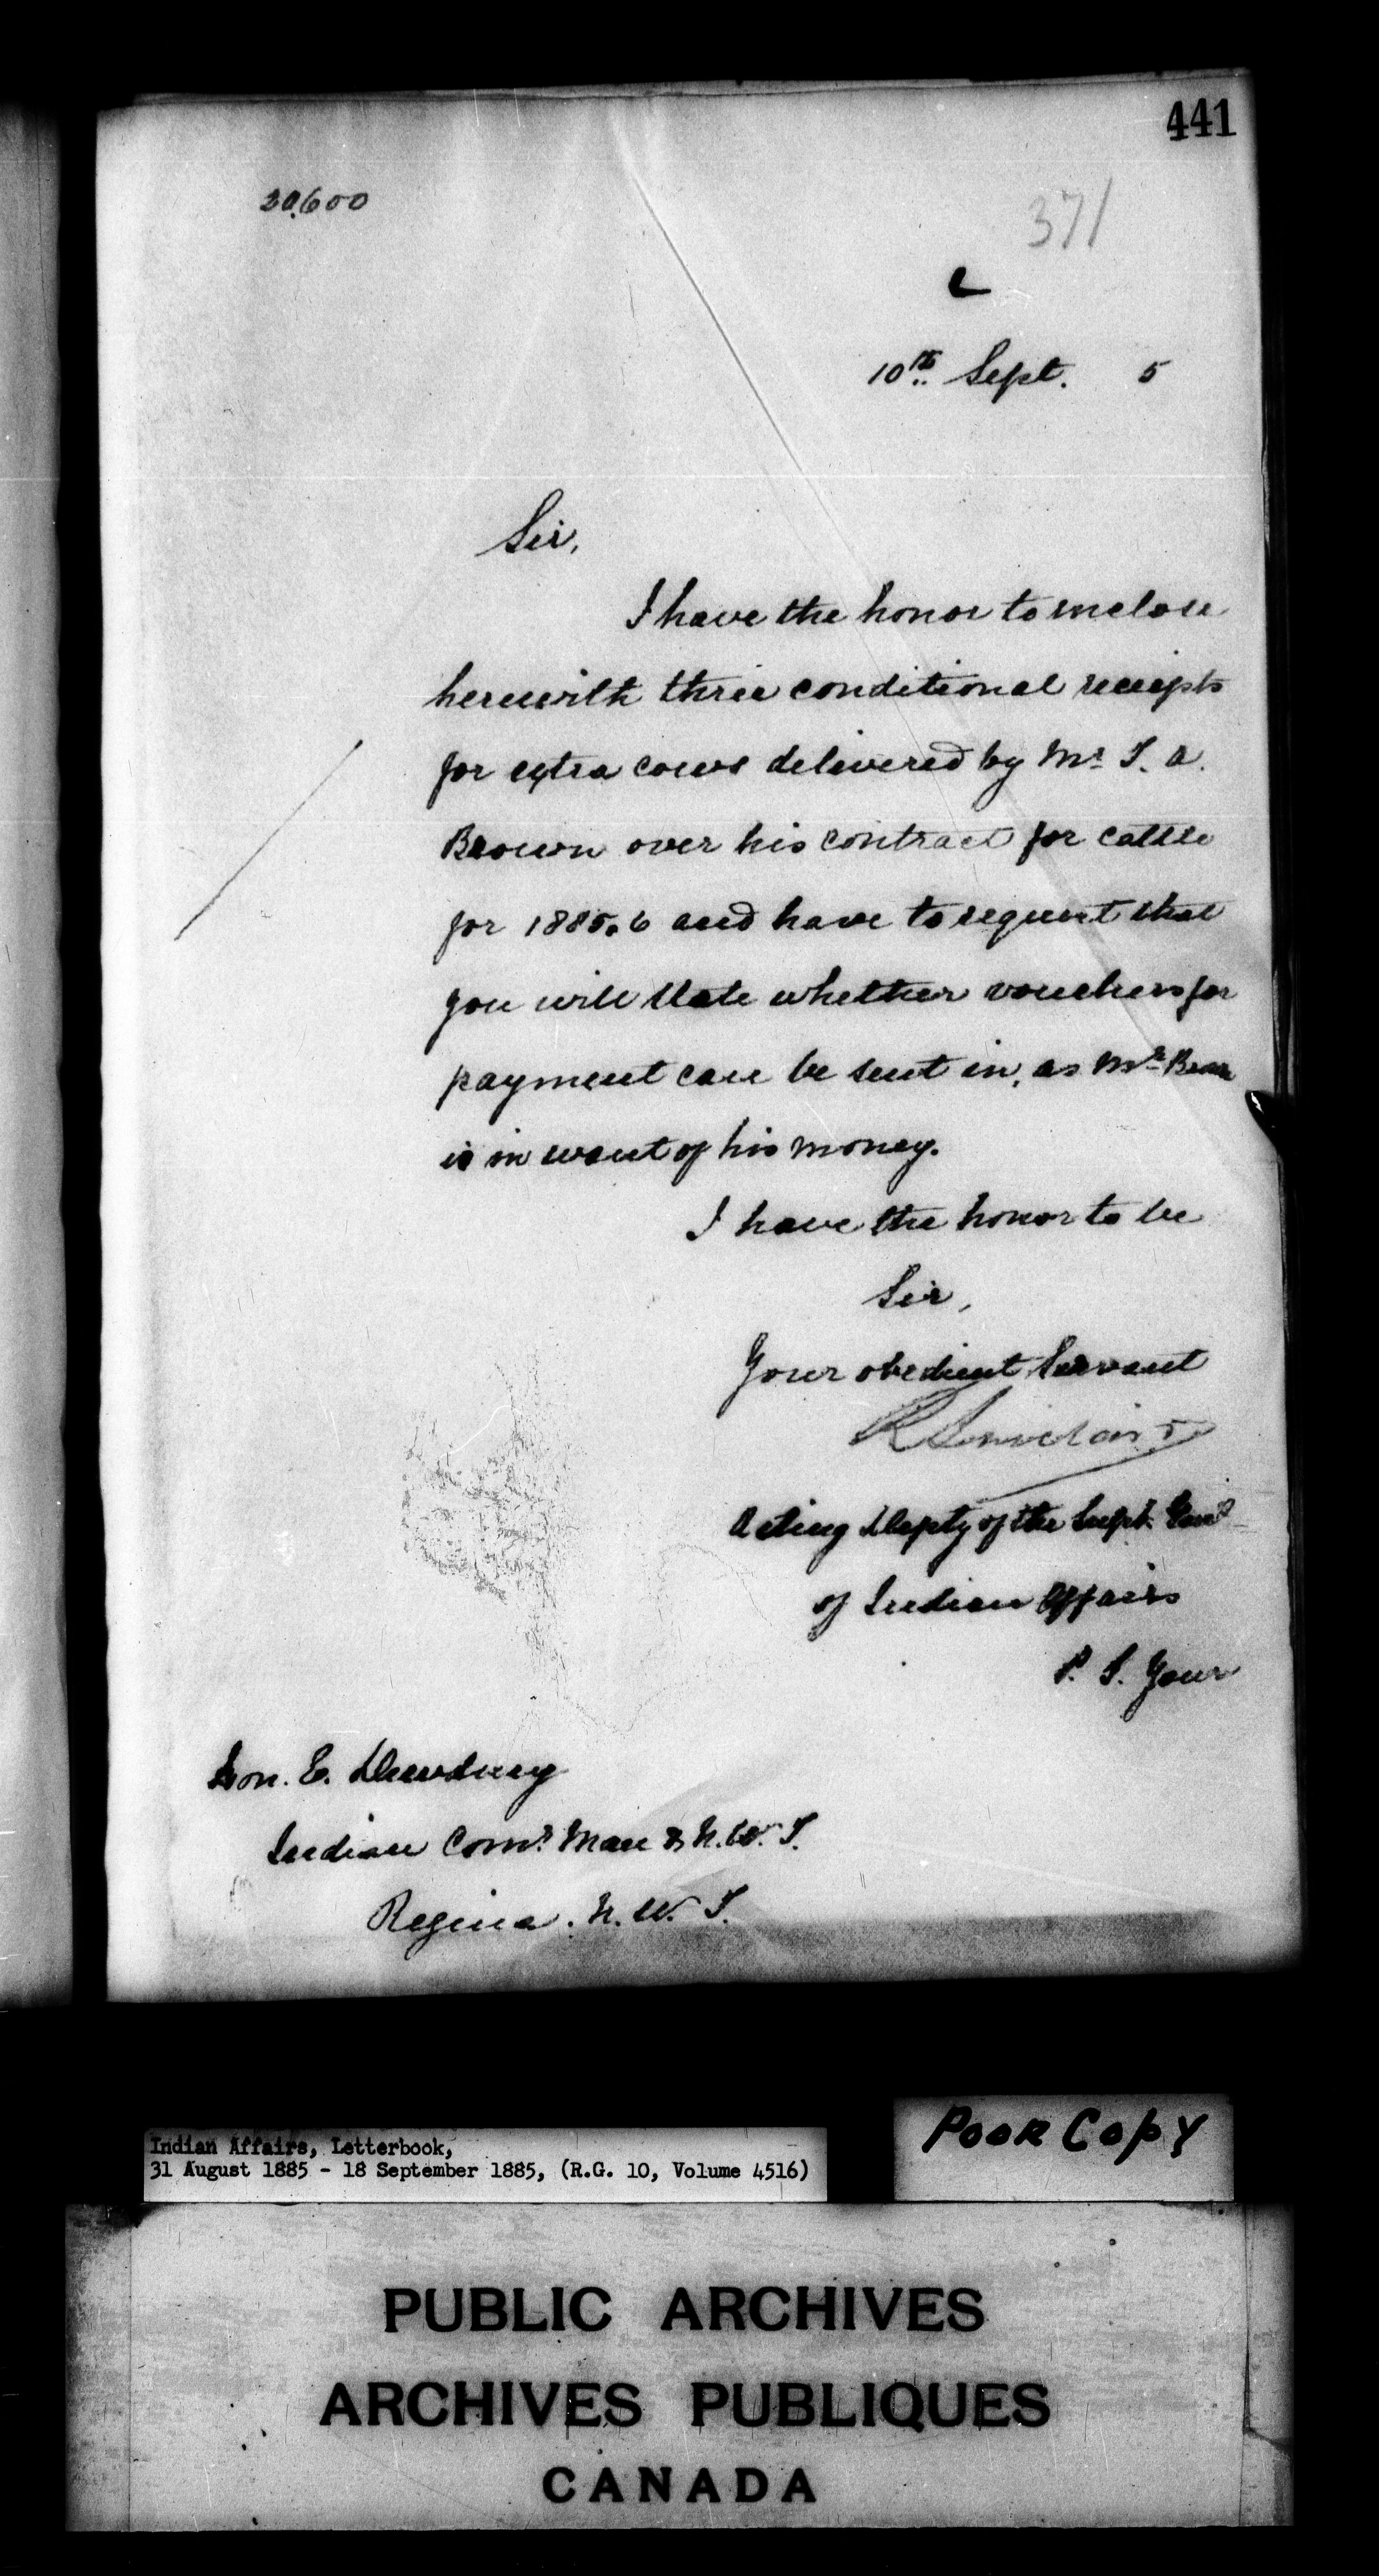 441
20,600
371
10th Sept. 5
Sir,
I have the honor to inclose
herewith three conditional receipts
for extra cows delivered by Mr T. A.
Brown over his contract for cattle
for 1885.6 and have to request that
you will state whether vouchers for
payment can be sent in, as Mr Brown
is in want of his money.
I have the honor to be
Sir,
Your obedient Servant
R Sinclair
Acting Depty of the Supt. Genl
of Indian Affairs
P. S. Your
Hon. E. Dewdney
Indian Comr. Man & N. W. T.
Regina. N. W. T.
Indian Affairs, Letterbook,
31 August 1885 - 18 September 1885, (R.G. 10, Volume 4516)
POOR COPY
PUBLIC ARCHIVES
ARCHIVES PUBLIQUES
CANADA